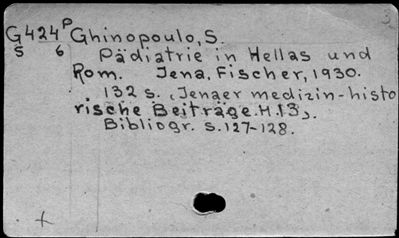 G424P Ghinopoulo, S.
S 6 Pädiatrie in Hellas und
Rom. Jena, Fischer, 1930.
132 s. (Jenaer medizin-histo
rische Beiträge. H.13).
Bibliogr. S.127-128.